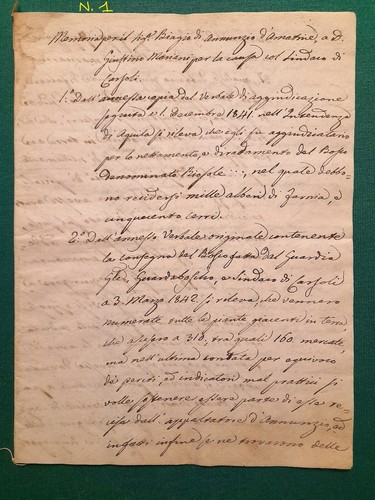 N. 1
Memoria per il Sig.r Biagio di Annunzio d'Amatrice, a d.
Giustino Mariani per la causa col Sindaco di
Carsoli.
1.° Dall'annessa copia del Verbale di aggiudicazione
seguita a 1. Decembre 1841. nell'Intendenza
di Aquila si rileva che egli fu aggiudicatario
per lo nettamento, e diradamento del Bosco
denominato, nel quale debbo-
no recidersi mille alberi di farnia, e
cinquecento cerri.
2.° Dall'annesso Verbale originale contenente
la consegna del Bosco fatta dal Guardia
Guardaboschi, e Sindaco di Carsoli
a 3. Marzo 1842. si rileva, che vennero
numerate tutte le piante giacenti in terra,
che ascesero a 310, tra quali 160. mercate,
ma nell'ultima contata per equivoco
de' periti, ed indicatori mal prattici si
volle sostenere essere parte di esse re-
cise dall'appaltatore d'Annunzio, ed
infatti infine se ne trovarono delle